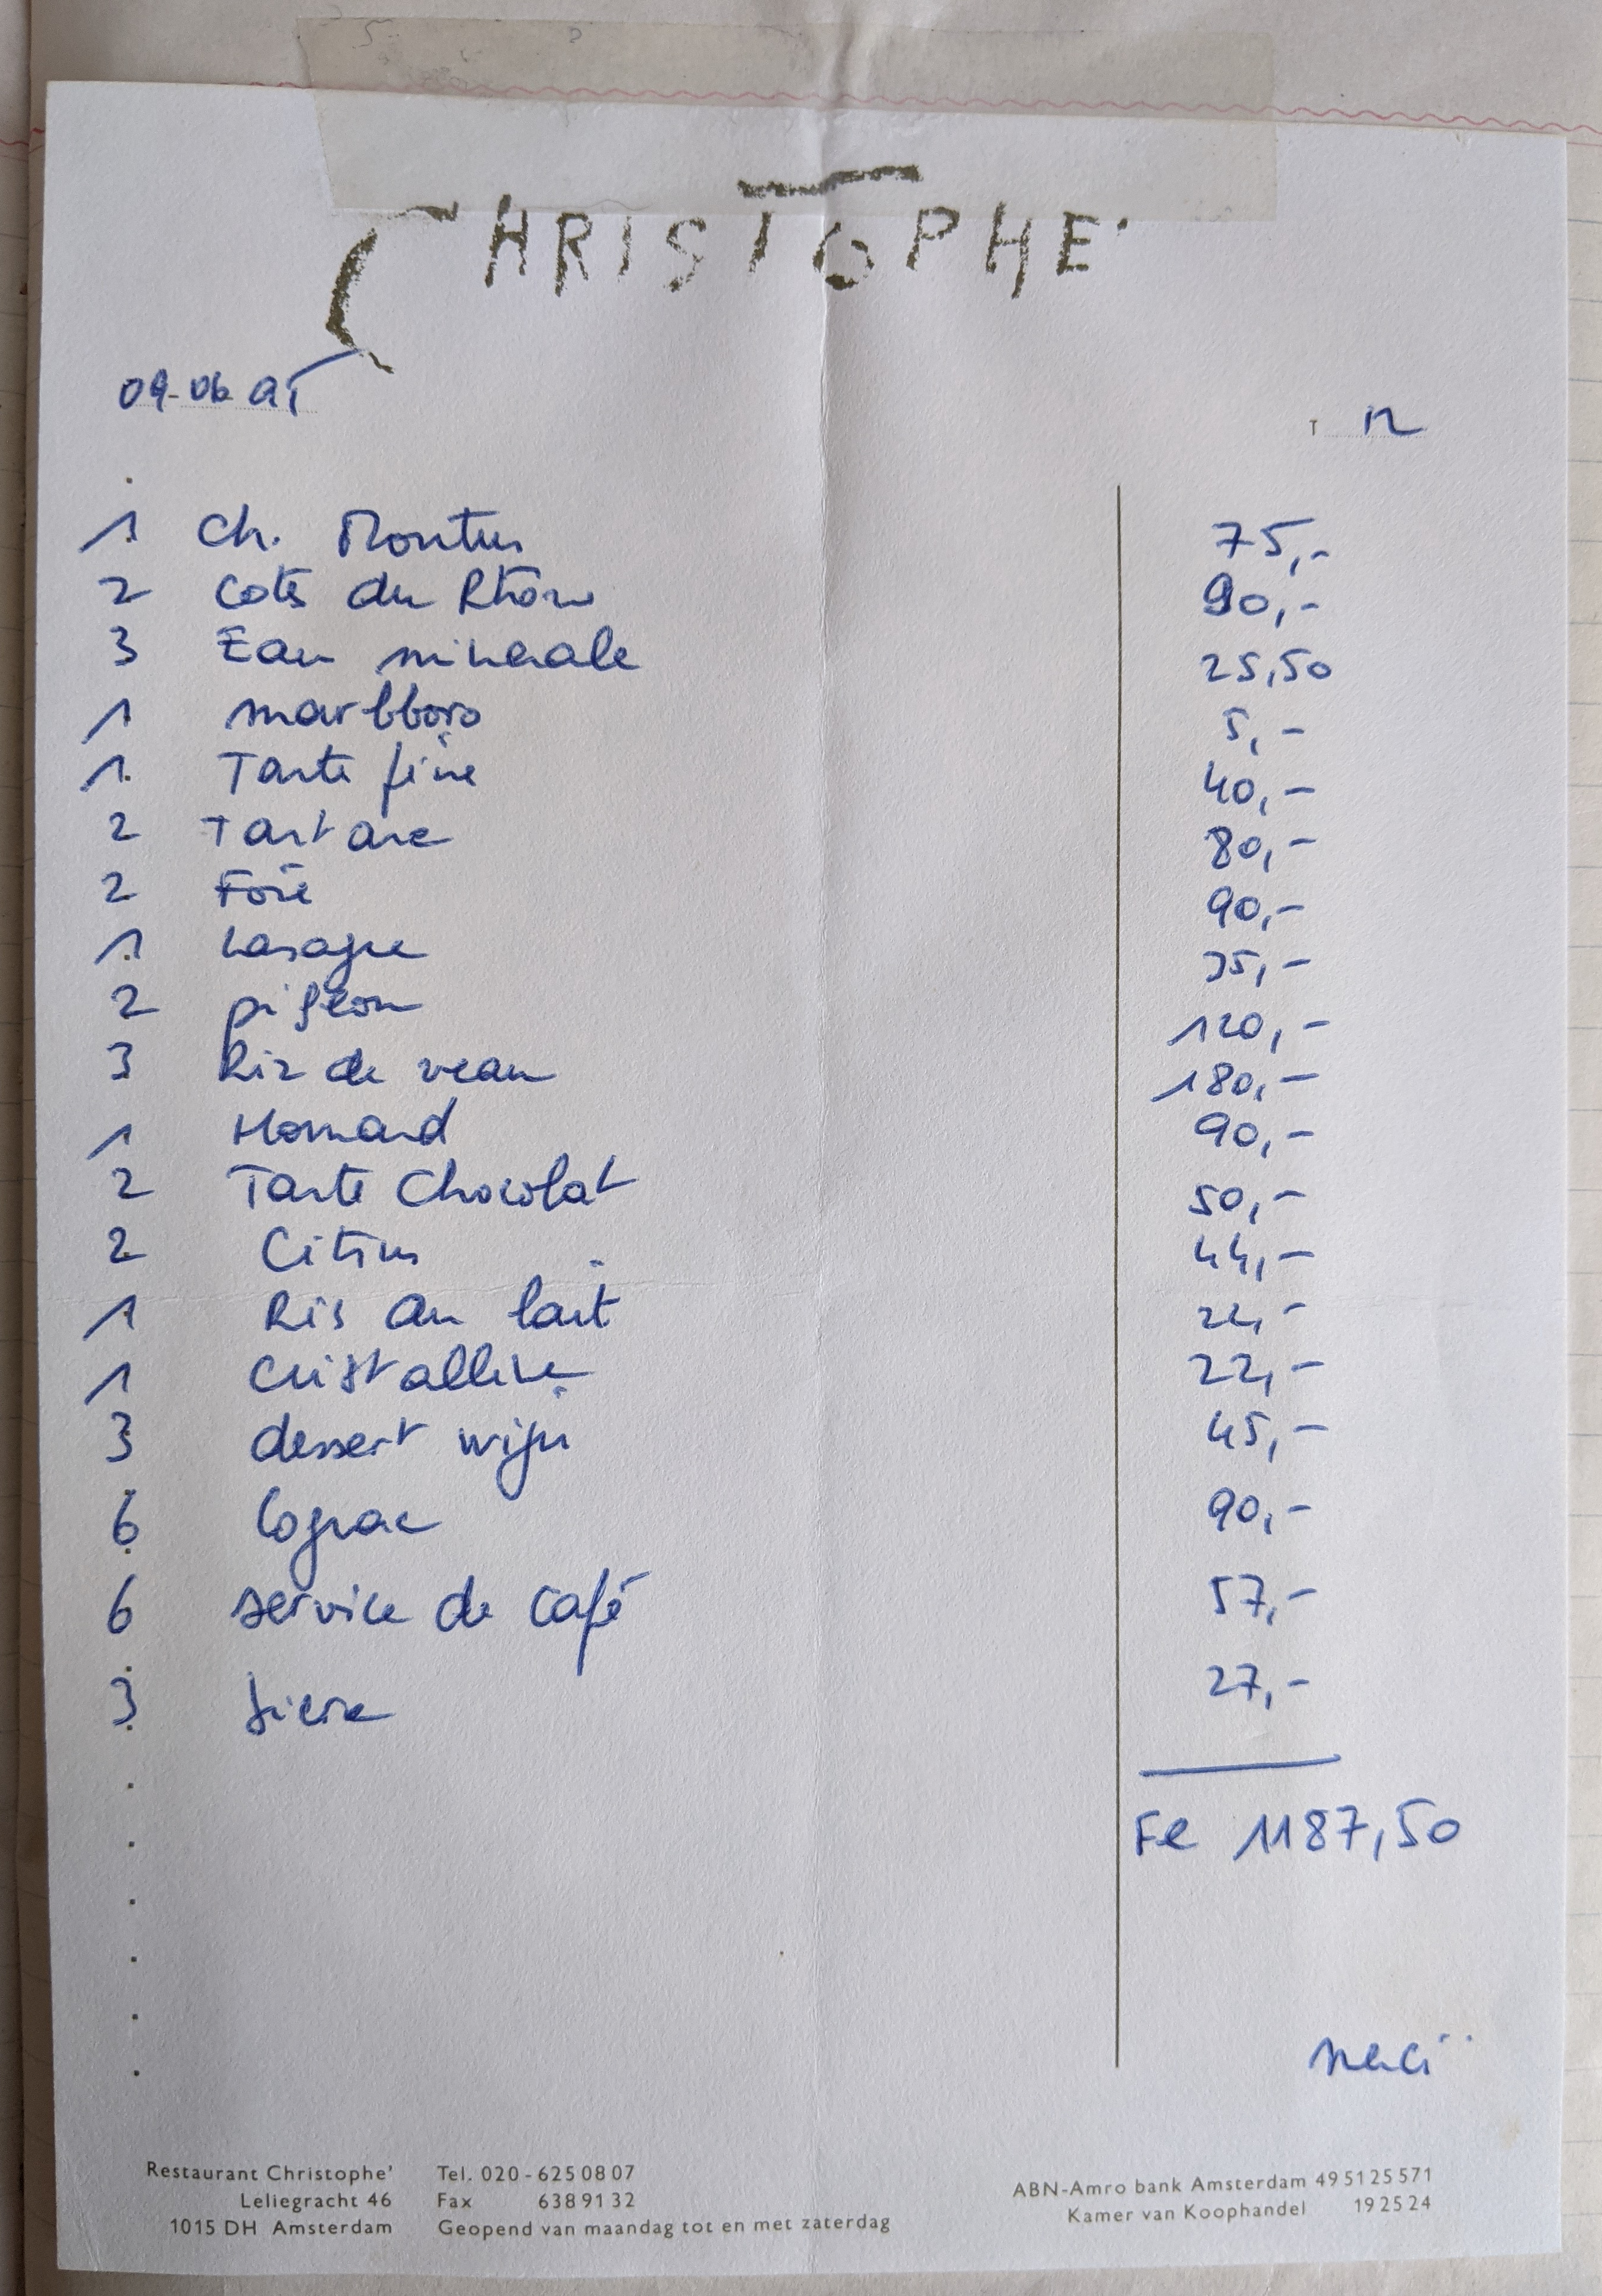 CHRISTOPHE'
09-06 95
T 12
1 Ch. Montus 75,-
2 Cotes du Rhône 90,-
3 Eau minerale 25,50
1 marlboro 5,-
1 Tarte fine 40,-
2 Tartare 80,-
2 Foie 90,-
1 Lasagne 35,-
2 pigeon 120,-
3 Riz de veau 180,-
1 Homard 90,-
2 Tarte Chocolat 50,-
2 Citrus 44,-
1 Ris au lait 22,-
1 Cristalline 22,-
3 dessert wijn 45,-
6 Cognac 90,-
6 service de café 57,-
3 biere 27,-
Fl 1187,50
merci
Restaurant Christophe' Tel. 020 - 625 08 07 ABN-Amro bank Amsterdam 49 51 25 571
Leliegracht 46 Fax 638 91 32 Kamer van Koophandel 19 25 24
1015 DH Amsterdam Geopend van maandag tot en met zaterdag